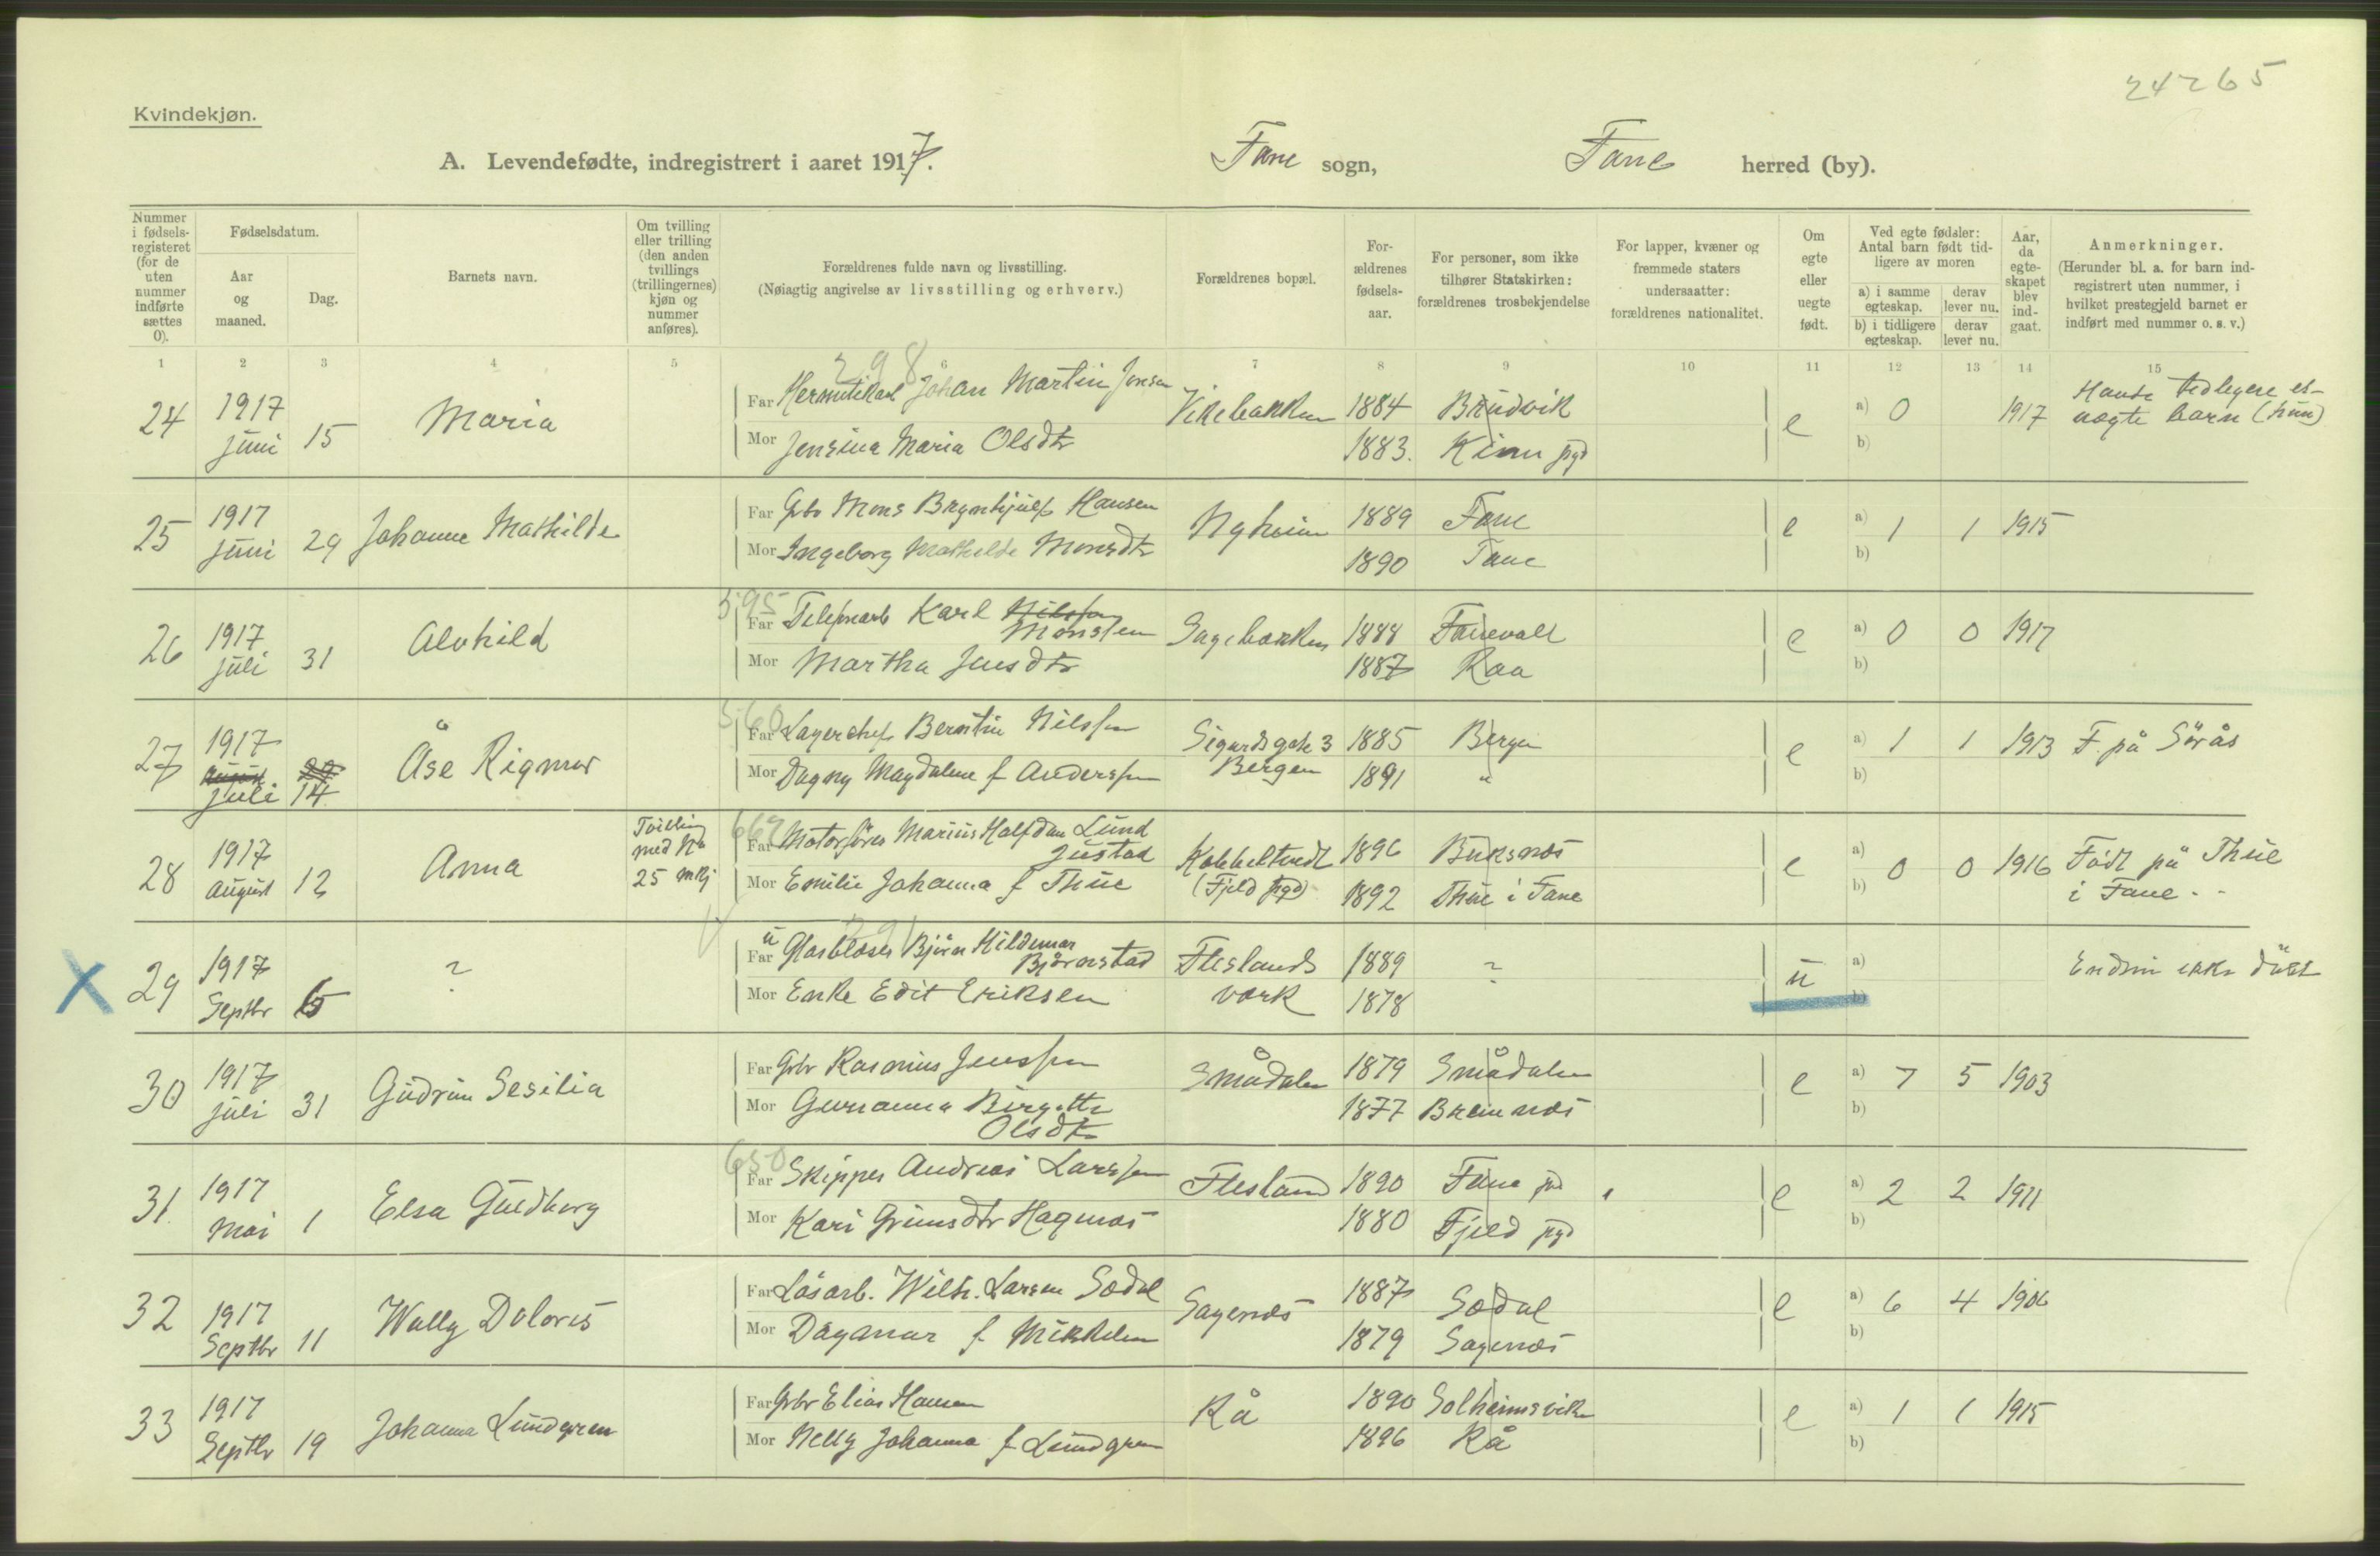 24265
Kvindekjøn.
A. Levendefødte, indregistrert i aaret 1917.
Fane sogn,
Fane herred (by).
Nummer i fødsels-registeret (for de uten nummer indførte sættes 0).
Fødselsdatum.
Aar og maaned.
Dag.
Barnets navn.
Om tvilling eller trilling (den anden tvillings (trillingernes) kjøn og nummer anføres).
Forældrenes fulde navn og livsstilling.
(Nøiagtig angivelse av livsstilling og erhverv.)
Forældrenes bopæl.
For-ældrenes fødsels-aar.
For personer, som ikke tilhører Statskirken: forældrenes trosbekjendelse
For lapper, kvæner og fremmede staters undersaatter: forældrenes nationalitet.
Om egte eller uegte født.
Ved egte fødsler: Antal barn født tid-ligere av moren
a) i samme egteskap. derav lever nu.
b) i tidligere egteskap. derav lever nu.
Aar, da egte-skapet blev ind-gaat.
Anmerkninger.
(Herunder bl. a. for barn ind-registrert uten nummer, i hvilket prestegjeld barnet er indført med nummer o. s. v.)
1 2 3 4 5 6 7 8 9 10 11 12 13 14 15
298
24 1917 juni 15 Maria
Far Johan Martin Jensen 1884 Brudvik
Mor Jensina Maria Olsdtr 1883. Kinn pgd
e a) 0 b) 1917 barn (hun)
25 1917 juni 29 Johanne Mathilde
Far Gbr Mons Brynhjulf Hansen Nyheim 1889 Fane
Mor Ingeborg Mathilde Monsdtr 1890 Fane
e a) 1 1 b) 1915
595
26 1917 juli 31 Alvhild
Far Karl Nilssen Monssen 1888
Mor Martha Jensdtr 1887 Raa
e a) 0 0 b) 1917
560
27 1917 august juli 14 Åse Rigmor
Far Lagerchef Berntin Nilssen Sigurdsgate 3 Bergen 1885 Bergen
Mor Dagny Magdalene f Anderssen 1891 "
e a) 1 1 b) 1913 F. på Sörås
28 1917 august 12 Anna
Tvilling med No 25 mkj
Far Motorfører Marius Halfdan Lund Justad (Fjeld pgd) 1896 Buksnæs
Mor Emilie Johanna f Thue 1892 Thue i Fane
e a) b) 0 0 1916 Födt på Thue i Fane
X 29 1917 Septbr 6 ?
u Far Glasblåser Björn Hildemar Björnstad Fleslands værk 1889 ?
Mor Enke Edit Eriksen 1878 "
u a) b) Endnu ikke döbt
30 1917 juli 31 Gudrun Sesilia
Far Gbr Rasmus Jenssen Smådalen 1879 Smådalen
Mor Birgitte Olsdtr 1877
e a) 7 5 b) 1903
650
31. 1917 Mai 1 Elsa Guldborg
Far Skipper Andreas Larssen Flesland 1890 Fane pgd
Mor Kari Grimsdtr Hagenæs 1880 Fjeld pgd
e a) 2 2 b) 1911
32 1917 Septbr 11 Wally Doloris
Far Løsarb. Wilh. Larsen Sædal Sagenæs 1887 Sædal
Mor Dagmar f Mikkelsen 1879 Sagenæs
e a) 6 4 b) 1906
33 1917 Septbr 19 Johanna Lundgren
Far Gbr Elias Hansen Rå 1890 Solheimsviken
Mor Nelly Johanna f Lundgren 1896 Rå
e a) 1 1 b) 1915